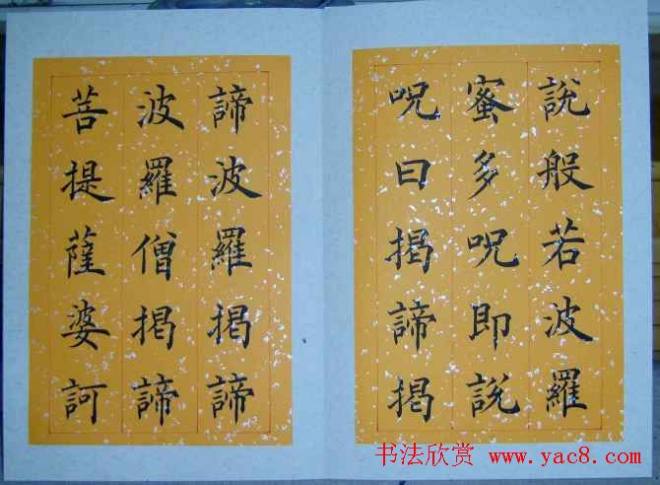 說般若波羅
蜜多呪即說
呪曰揭諦揭
諦波羅揭諦
波羅僧揭諦
菩提薩婆訶
书法欣赏 www.yac8.com